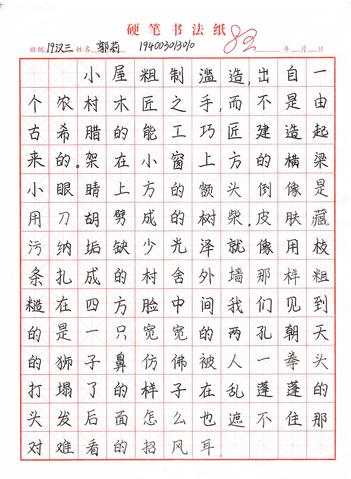 硬笔书法纸
班级 19汉三 姓名 郭莉 1940030130 年 月 日
83
小屋粗制滥造,出自一
个农村木匠之手,而不是由
古希腊的能工巧匠建造起
来的。架在小窗上方的横梁
小眼睛上方的额头倒像是
用刀胡劈成的树柴。皮肤藏
污纳垢缺少光泽就像用枝
条扎成的村舍外墙那样粗
糙在四方脸中间我们见到
的是一只宽宽的两孔朝天
的狮子鼻仿佛被人一拳头
打塌了的样子在乱蓬蓬的
头发后面怎么也遮不住那
对难看的招风耳